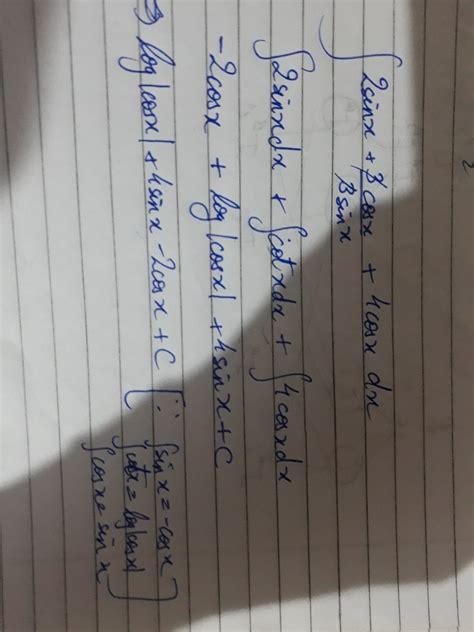 2
∫ 2sinx + 3cosx/3sinx + 4cosx dx
∫2sinxdx + ∫cotxdx + ∫4cosxdx
-2cosx + log|cosx| + 4sinx + C
⇒ log|cosx| + 4sinx - 2cosx + C [∵ ∫sinx = -cosx
∫cotx = log|cosx|
∫cosx = sinx]